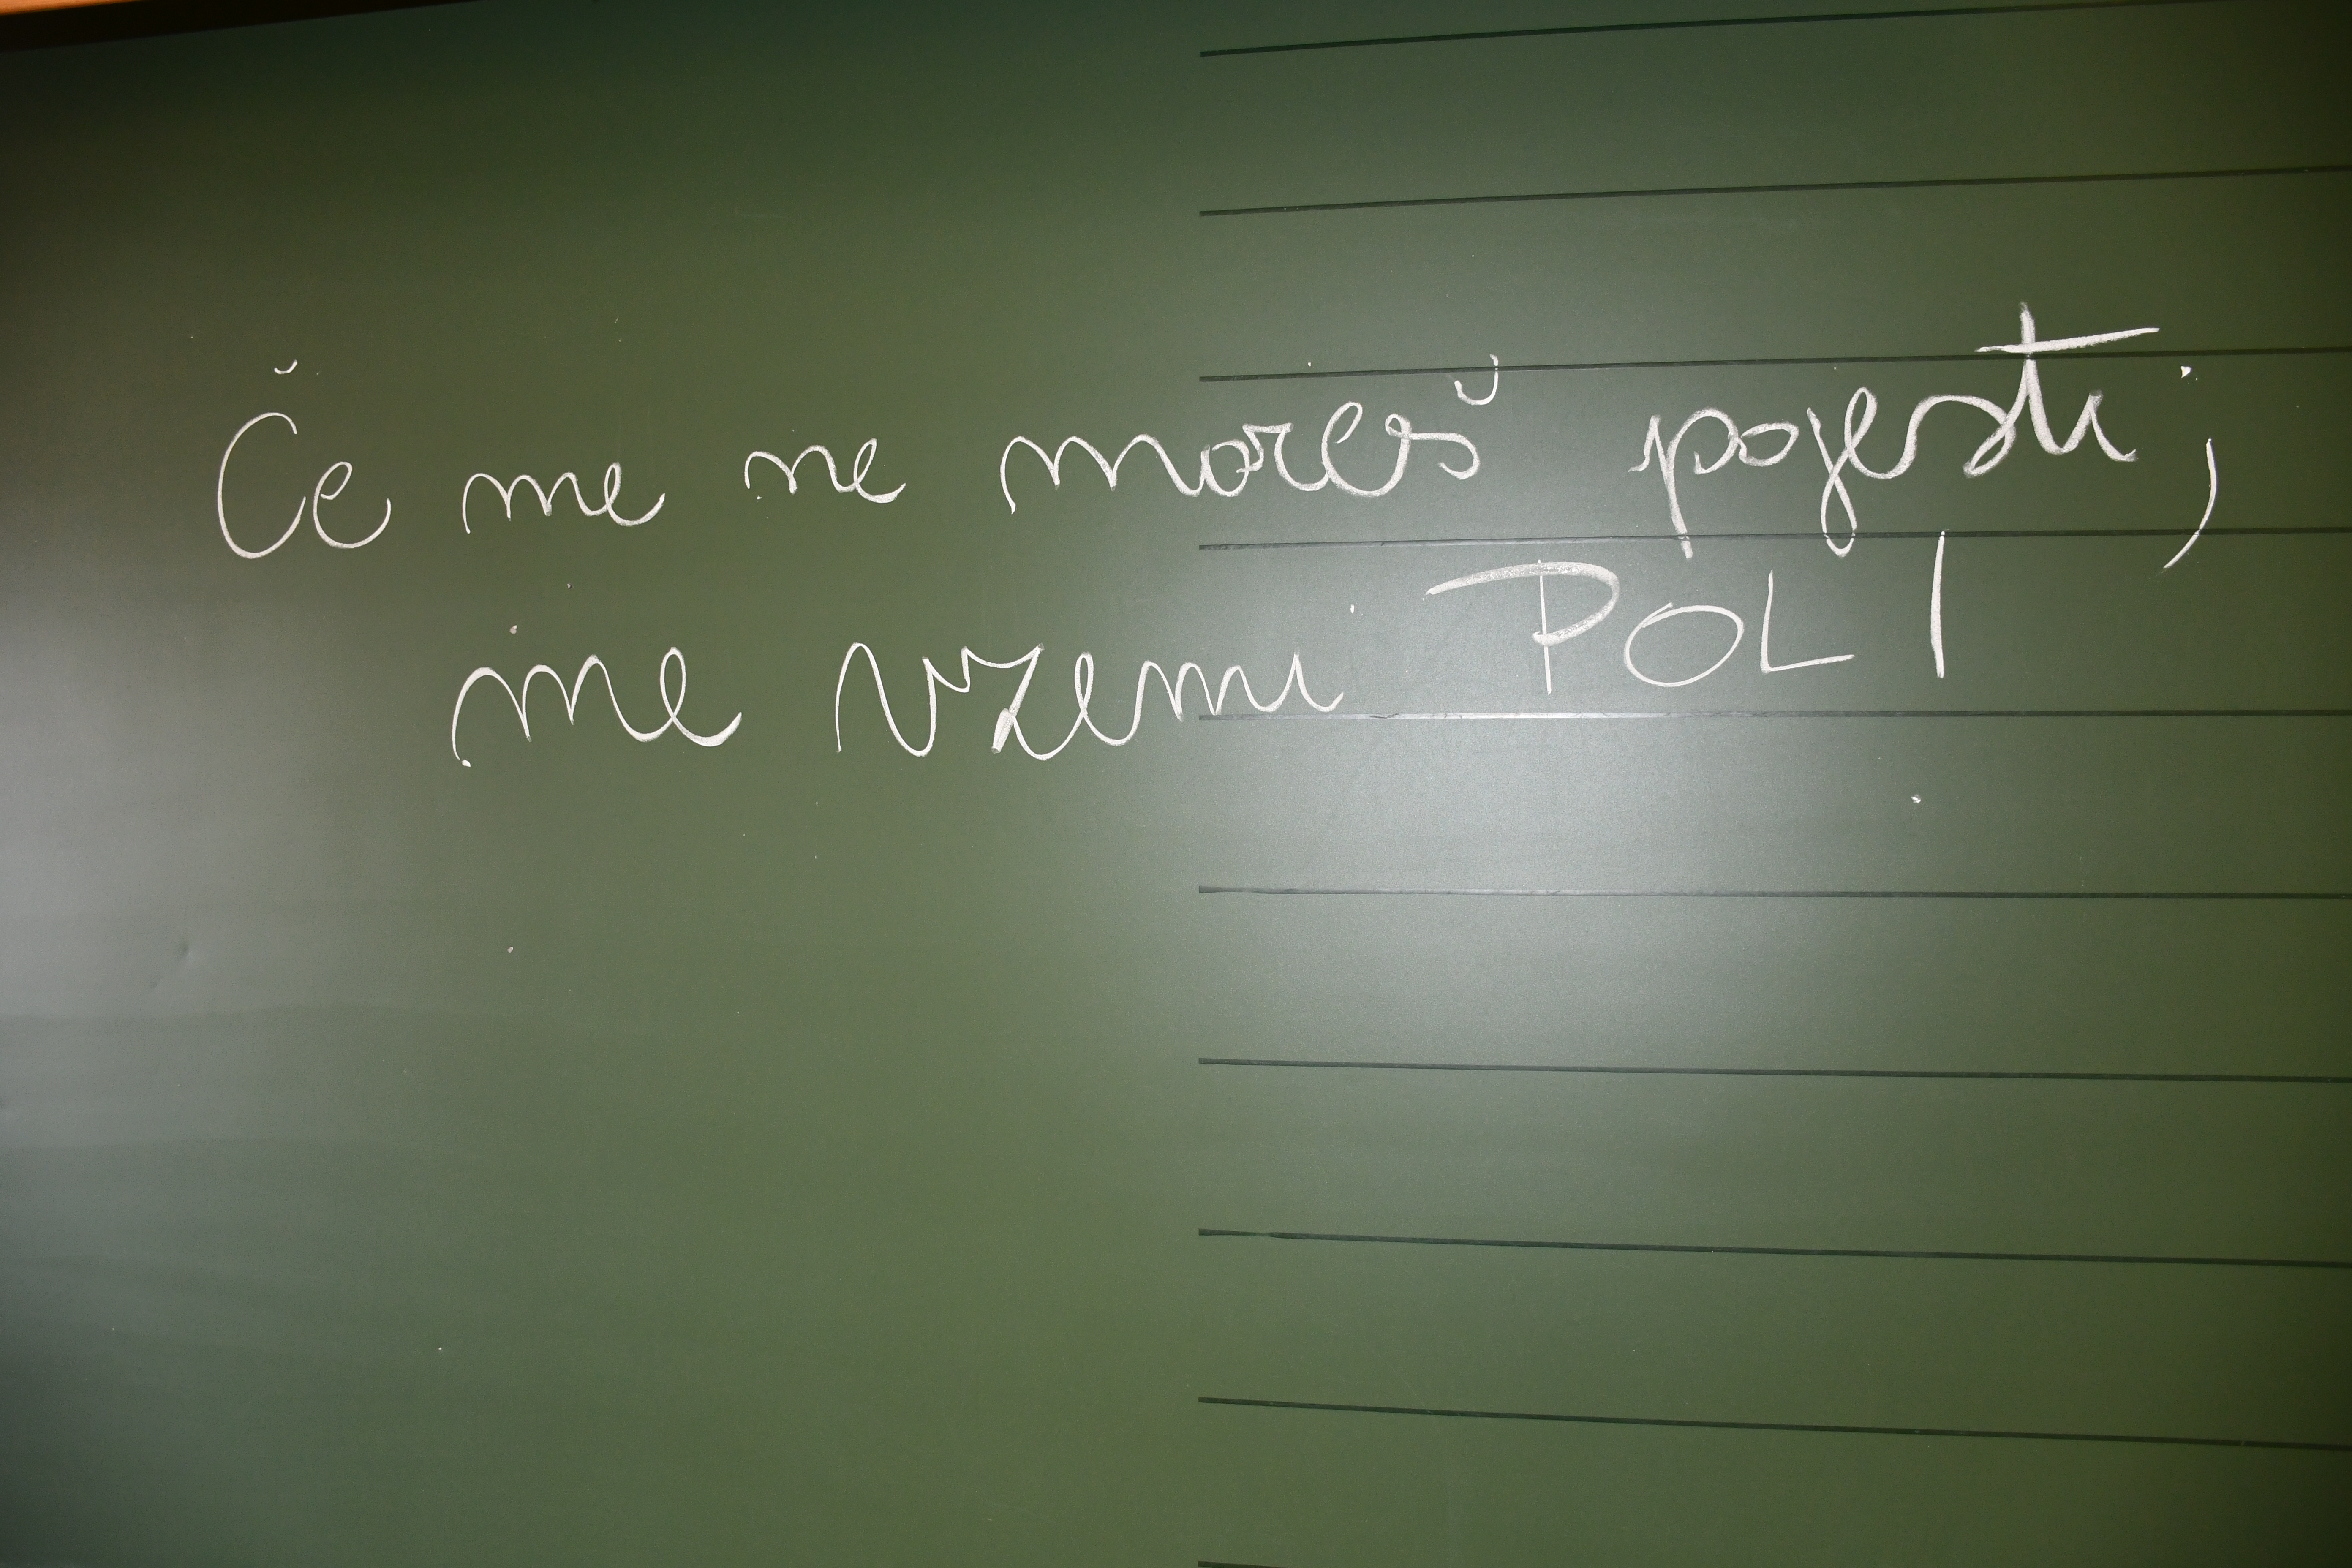 Če me ne moreš pojesti,
me vzemi POL!